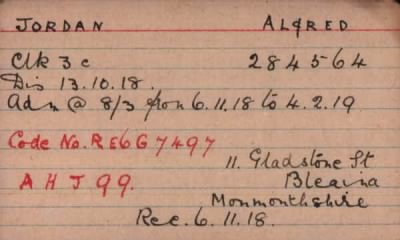 JORDAN ALFRED
Clk 3 c 284564
Dis 13.10.18.
Adm @ 8/3 from 6.11.18 to 4.2.19
Code No. RE6G7497
11. Gladstone St
A H J 99. Bleaina
Monmonthshire
Rec. 6.11.18.